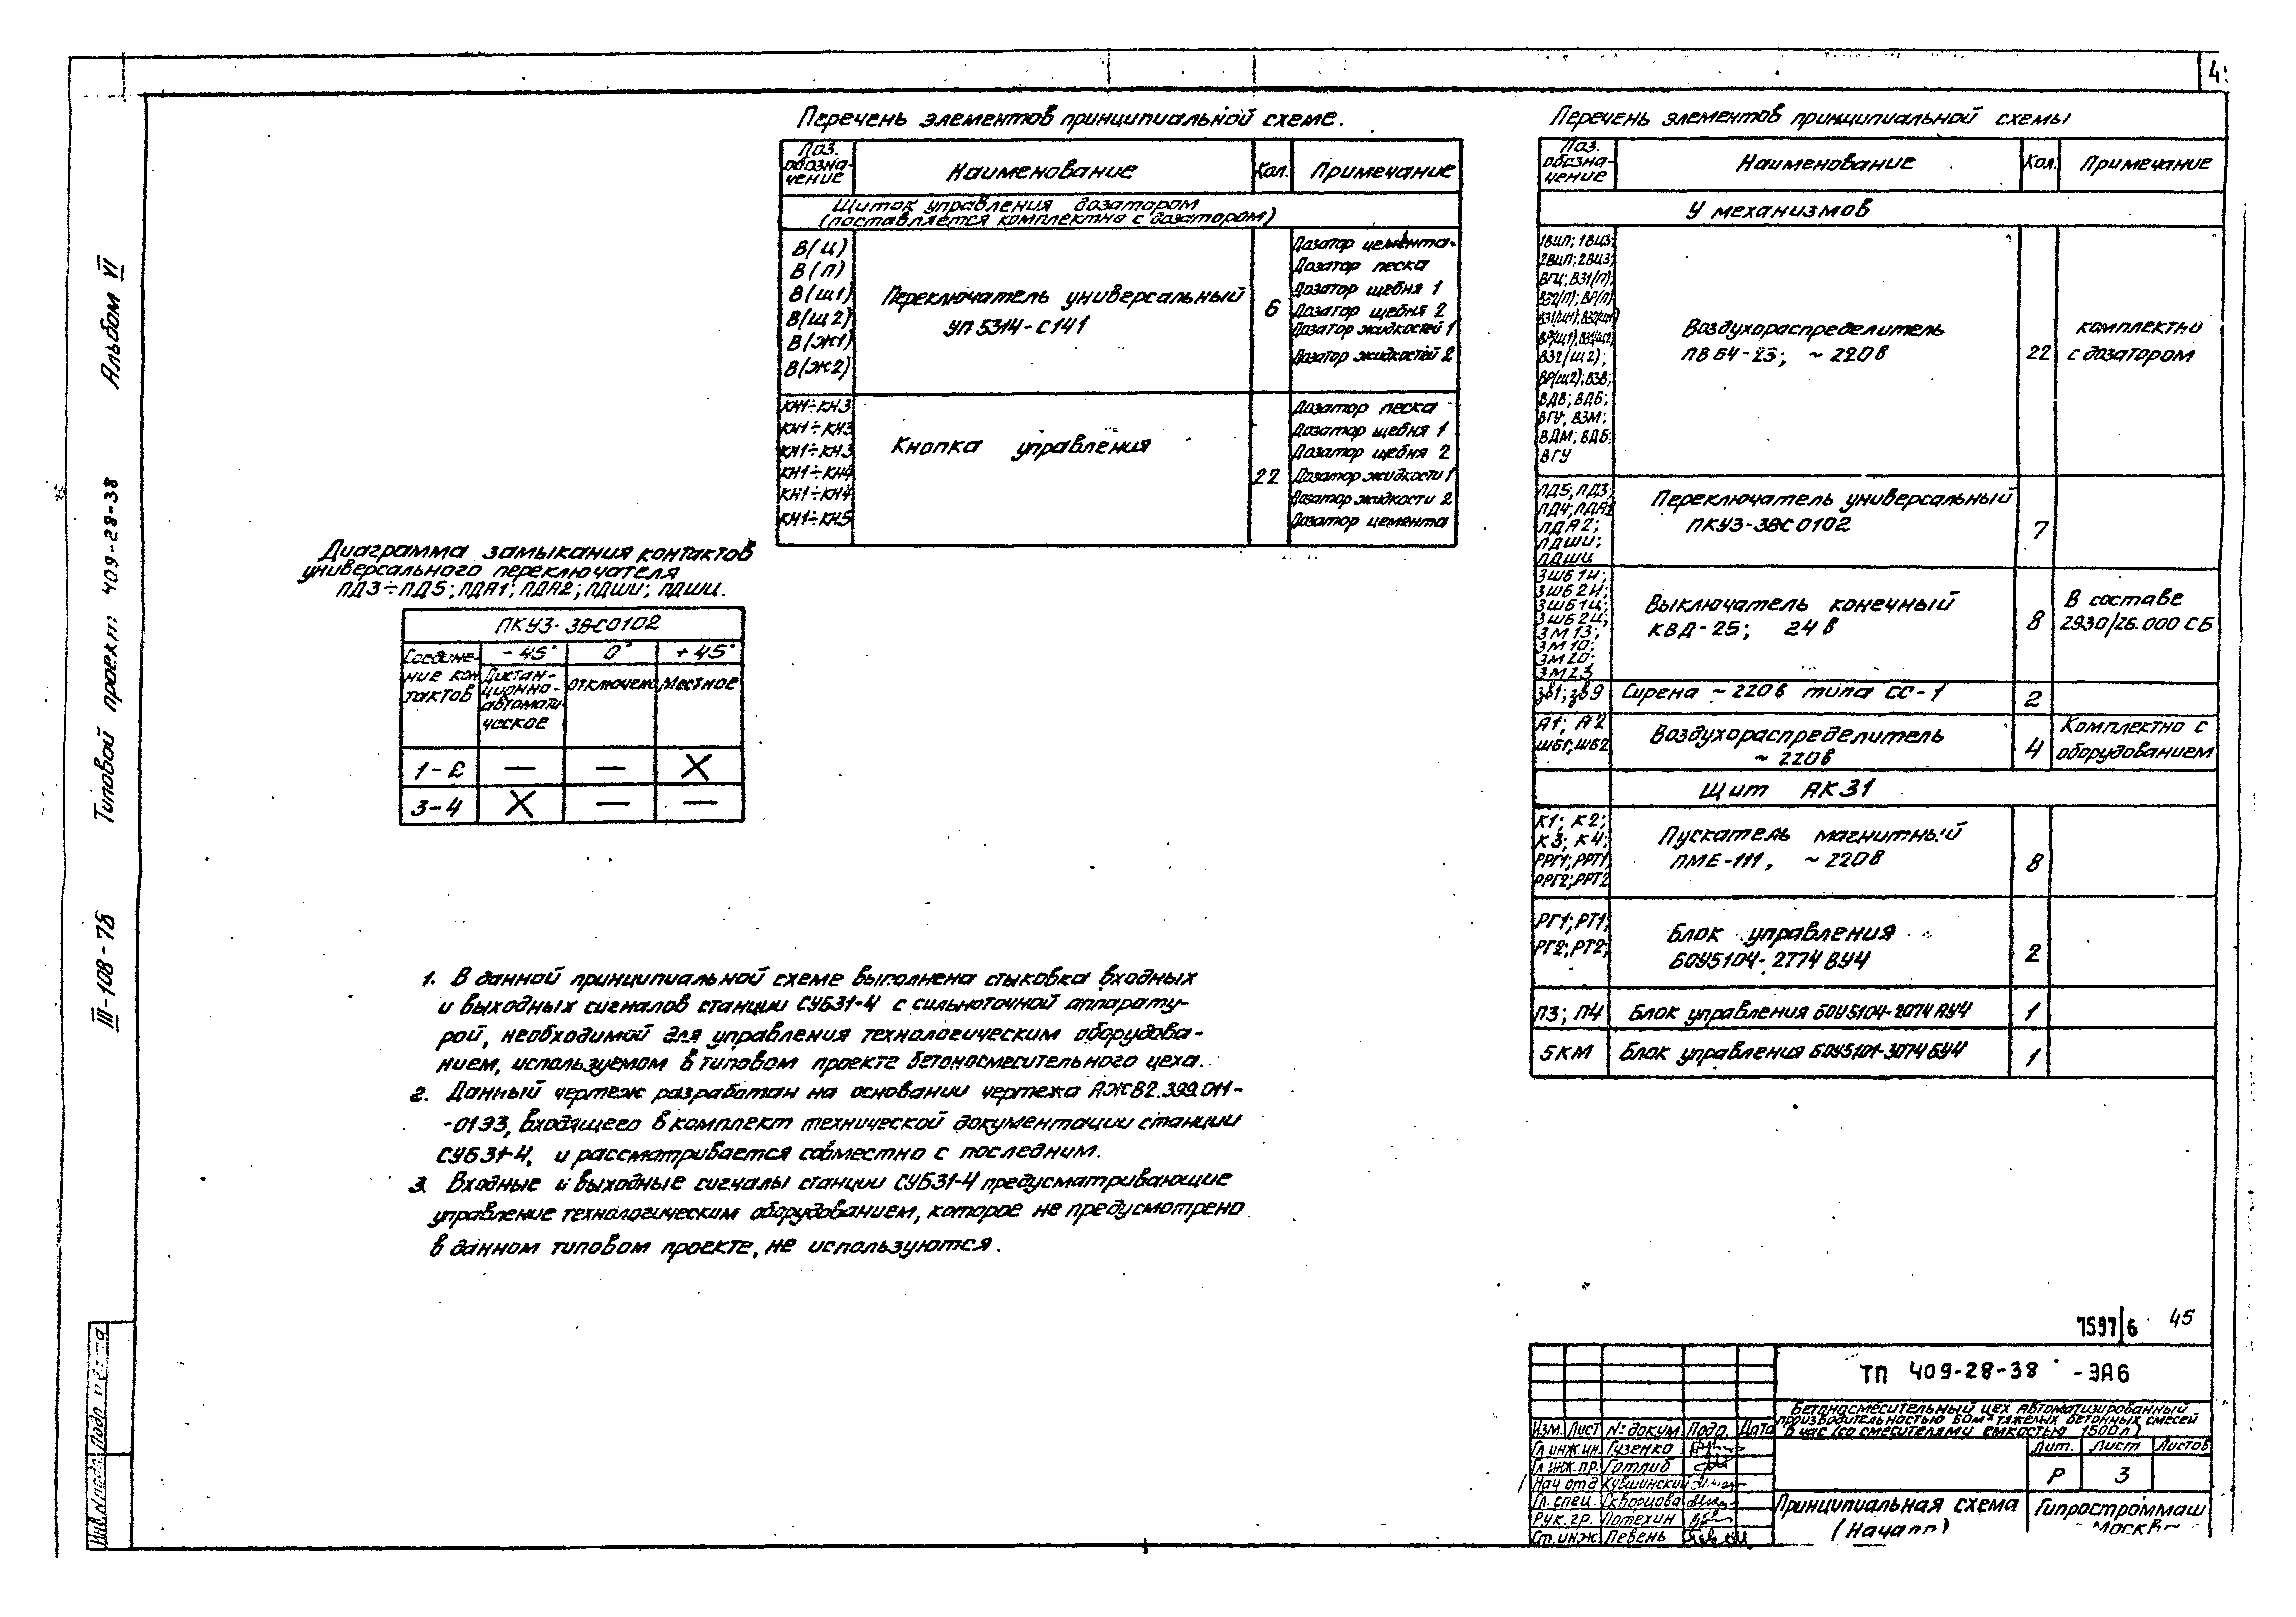 4
Альбом VI
Типовой проект 409-28-38
III-108-78
Перечень элементов принципиальной схеме.
Поз. обозна-чение
Наименование
Кол.
Примечание
Щиток управления дозатором
(поставляется комплектно с дозатором)
В(ц)
В(п)
В(щ1)
В(щ2)
В(ж1)
В(ж2)
Переключатель универсальный
УП 5314-С141
6
Дозатор цемента
Дозатор песка
Дозатор щебня 1
Дозатор щебня 2
Дозатор жидкостей 1
Дозатор жидкостей 2
КН1÷КН3
КН1÷КН3
КН1÷КН3
КН1÷КН4
КН1÷КН4
КН1÷КН5
Кнопка управления
22
Дозатор песка
Дозатор щебня 1
Дозатор щебня 2
Дозатор жидкости 1
Дозатор жидкости 2
Дозатор цемента
Диаграмма замыкания контактов
универсального переключателя
ПД3÷ПД5; ПДА1; ПДА2; ПДШИ; ПДШЦ.
ПКУ3-38С0102
Соедине-
ние кон
тактов
-45°
0°
+45°
Дистан-
ционно-
автомати-
ческое
отключено
Местное
1-2 — — X
3-4 X — —
1. В данной принципиальной схеме выполнена стыковка входных
и выходных сигналов станции СУБ31-4 с сильноточной аппарату-
рой, необходимой для управления технологическим оборудова-
нием, используемом в типовом проекте бетоносмесительного цеха.
2. Данный чертеж разработан на основании чертежа АЖВ2.399.011-
-01Э3, входящего в комплект технической документации станции
СУБ31-4, и рассматривается совместно с последним.
3. Входные и выходные сигналы станции СУБ31-4 предусматривающие
управление технологическим оборудованием, которое не предусмотрено
в данном типовом проекте, не используются.
Перечень элементов принципиальной схемы
Поз.
обозна-
чение
Наименование
Кол.
Примечание
У механизмов
1ВЦП; 1ВЦЗ;
2ВЦП; 2ВЦЗ;
ВГЦ; ВЗ1(П);
ВЗ2(П); ВР(П)
ВЗ1(щ1); ВЗ2(щ1)
ВР(щ1); ВЗ1(щ2)
ВЗ2(щ2);
ВР(щ2); ВЗВ;
ВДВ; ВДБ;
ВГУ; ВЗМ;
ВДМ; ВДБ;
ВГУ
Воздухораспределитель
ПВ84-23; ~220в
22
комплектно
с дозатором
ПД5; ПД3;
ПД4; ПДА1
ПДА2;
ПДШИ;
ПДШЦ
Переключатель универсальный
ПКУ3-38С0102
7
3ШБ1И;
3ШБ2И;
3ШБ1Ц;
3ШБ2Ц;
3М13;
3М10;
3М20;
3М23
Выключатель конечный
КВД-25; 24в
8
В составе
2930/26.000 СБ
Зв1; Зв9
Сирена ~220в типа СС-1
2
А1; А2
ШБ1; ШБ2
Воздухораспределитель
~220в
4
Комплектно с
оборудованием
Щит АК31
К1; К2;
К3; К4;
РРГ1; РРТ1
РРГ2; РРТ2
Пускатель магнитный
ПМЕ-111, ~220в
8
РГ1; РТ1;
РГ2; РТ2;
Блок управления
БОУ5104-2774ВУ4
2
П3; П4
Блок управления БОУ5104-2074АУ4
1
5КМ
Блок управления БОУ5101-3074БУ4
1
7597/6 45
ТП 409-28-38 -ЭА6
Бетоносмесительный цех автоматизированный
производительностью 60м³ тяжелых бетонных смесей
в час (со смесителями емкостью 1500л)
Изм. Лист № докум Подп. Дата
Гл инж.ин. Гузенко
Гл инж.пр. Готлиб
Нач отд Кувшинский
Гл. спец. Скворцова
Рук. гр. Потехин
Ст. инж. Певень
Лит. Лист Листов
Р 3
Принципиальная схема
(Начало)
Гипростроммаш
Москва
Инв.№подл. Подп и дата